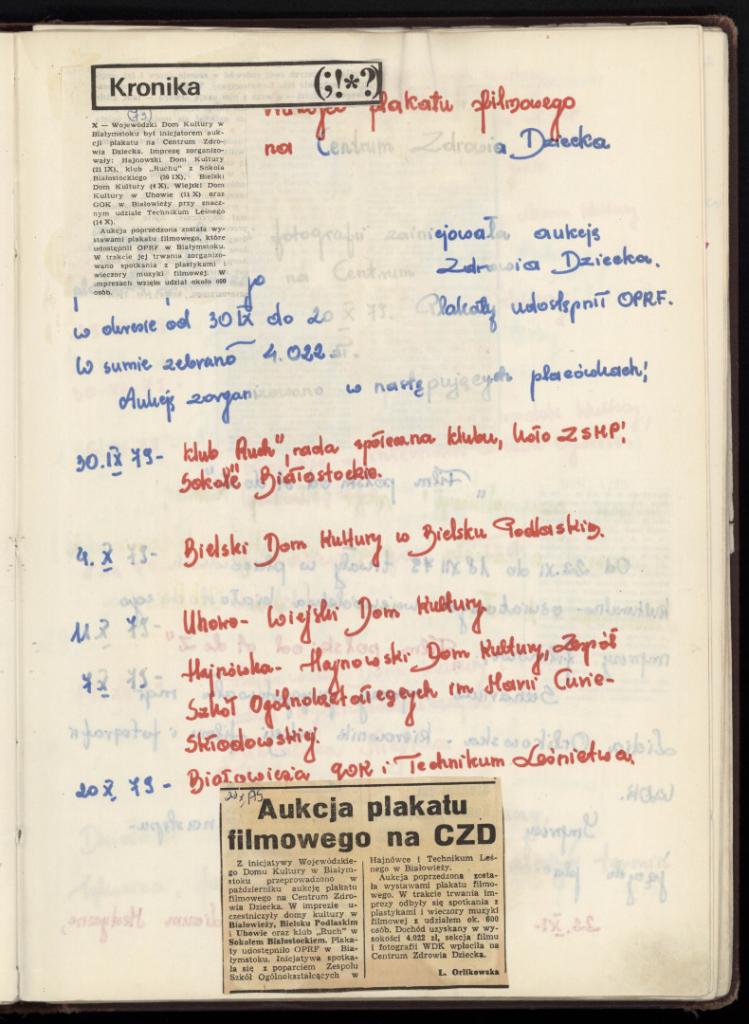 Kronika (;!*?)
(79)
X — Wojewódzki Dom Kultury w
Białymstoku był inicjatorem auk-
cji plakatu na Centrum Zdro-
wia Dziecka. Imprezę zorganizo-
wały: Hajnowski Dom Kultury
(21 IX), klub „Ruchu" z Sokoła
Białostockiego (30 IX), Bielski
Dom Kultury (4 X), Wiejski Dom
Kultury w Uhowie (11 X) oraz
GOK w Białowieży przy znacz-
nym udziale Technikum Leśnego
(14 X).
Aukcja poprzedzona została wy-
stawami plakatu filmowego, które
udostępnił OPRF w Białymstoku.
W trakcie jej trwania zorganizo-
wano spotkania z plastykami i
wieczory muzyki filmowej. W
imprezach wzięło udział około 600
osób.
plakatu filmowego
na Centrum Zdrowia Dziecka
fotografii zainicjowała aukcję
na Centrum Zdrowia Dziecka.
w okresie od 30 IX do 20 X 79. Plakaty udostępnił OPRF.
W sumie zebrano 4.022 zł.
Aukcję zorganizowano w następujących placówkach:
30.IX 79- Klub „Ruch", rada społeczna klubu, koło ZSMP!
Sokole Białostockie.
4. X 79- Bielski Dom Kultury w Bielsku Podlaskim.
11 X 79- Uhowo- Wiejski Dom Kultury
7 X 79- Hajnówka- Hajnowski Dom Kultury, Zespół
Szkół Ogólnokształcących im Marii Curie-
Skłodowskiej.
20 X 79- Białowieża GOK i Technikum Leśnictwa.
Aukcja plakatu
filmowego na CZD
Z inicjatywy Wojewódzkie-
go Domu Kultury w Białym-
stoku przeprowadzono w
październiku aukcję plakatu
filmowego na Centrum Zdro-
wia Dziecka. W imprezie u-
czestniczyły domy kultury w
Białowieży, Bielsku Podlaskim
i Uhowie oraz klub „Ruch" w
Sokołem Białostockiem. Plaka-
ty udostępniło OPRF w Bia-
łymstoku. Inicjatywa spotka-
ła się z poparciem Zespołu
Szkół Ogólnokształcących w
Hajnówce i Technikum Leś-
nego w Białowieży.
Aukcja poprzedzona zosta-
ła wystawami plakatu filmo-
wego. W trakcie trwania im-
prezy odbyły się spotkania z
plastykami i wieczory muzyki
filmowej z udziałem ok. 600
osób. Dochód uzyskany w wy-
sokości 4.022 zł, sekcja filmu
i fotografii WDK wpłaciła na
Centrum Zdrowia Dziecka.
L. Orlikowska